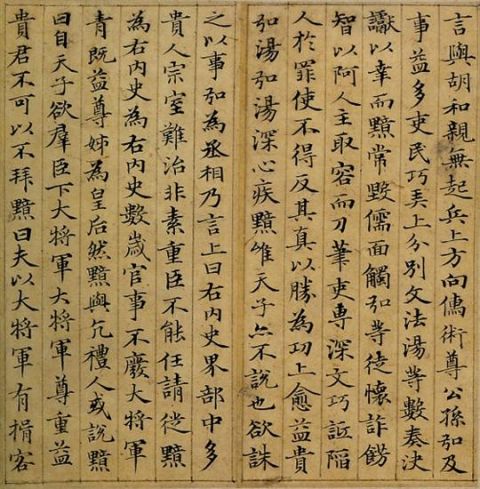 言與胡和親無起兵上方向儒術尊公孫弘及
事益多吏民巧弄上分別文法湯等數奏決
讞以幸而黯常毀儒面觸弘等徒懷詐飾
智以阿人主取容而刀筆吏專深文巧詆陷
人於罪使不得反其真以勝為功上愈益貴
弘湯弘湯深心疾黯唯天子亦不說也欲誅
之以事弘為丞相乃言上曰右內史界部中多
貴人宗室難治非素重臣不能任請徙黯
為右內史為右內史數歲官事不廢大將軍
青既益尊姊為皇后然黯與亢禮人或說黯
曰自天子欲羣臣下大將軍大將軍尊重益
貴君不可以不拜黯曰夫以大將軍有揖客